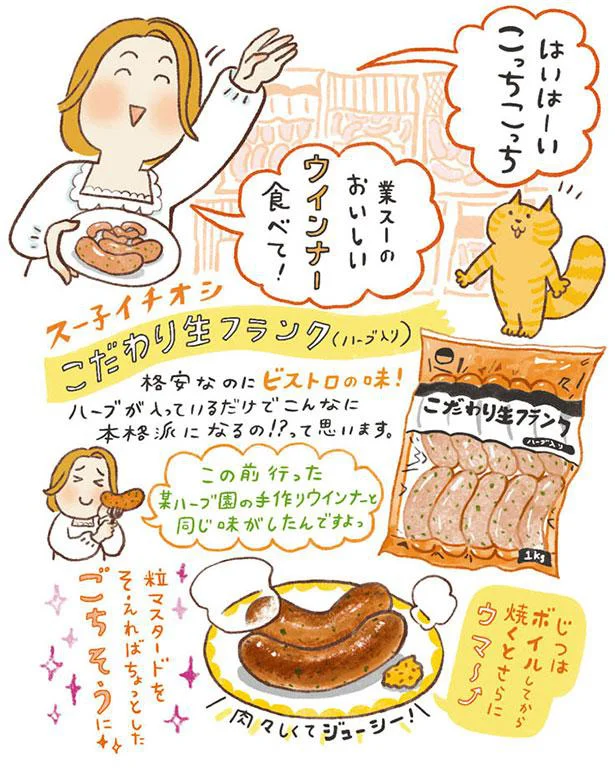 はいはーい
こっちこっち
業スーの
おいしい
ウインナー
食べて!
スー子イチオシ
こだわり生フランク(ハーブ入り)
格安なのにビストロの味!
ハーブが入っているだけでこんなに
本格派になるの!?って思います。
こだわり生フランク
ハーブ入り
1kg
この前行った
某ハーブ園の手作りウインナーと
同じ味がしたんですよっ
粒マスタードを
そえればちょっとした
ごちそうに
じつは
ボイルしてから
焼くとさらに
ウマ〜♪
肉々しくてジューシー!